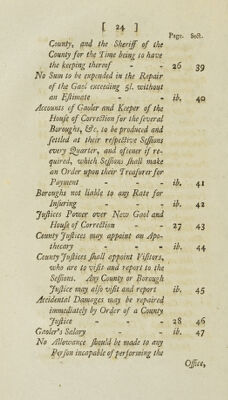 [ 24 ]
Page. Sect.
County, and the Sheriff of the
County for the Time being to have
the keeping thereof - - 26 39
No Sum to be expended in the Repair
of the Gaol exceeding 5l. without
an Estimate - - ib. 40
Accounts of Gaoler and Keeper of the
House of Correction for the several
Boroughs, &c. to be produced and
settled at their respective Sessions
every Quarter, and oftener if re-
quired, which Sessions shall make
an Order upon their Treasurer for
Payment - - - ib. 41
Boroughs not liable to any Rate for
Insuring - - - ib. 42
Justices Power over New Gaol and
House of Correction - - 27 43
County Justices may appoint an Apo-
thecary - - - ib. 44
County Justices shall appoint Visiters,
who are to visit and report to the
Sessions. Any County or Borough
Justice may also visit and report ib. 45
Accidental Damages may be repaired
immediately by Order of a County
Justice - - - 28 46
Gaoler's Salary - - ib. 47
No Allowance should be made to any
Person incapable of performing the
Office,